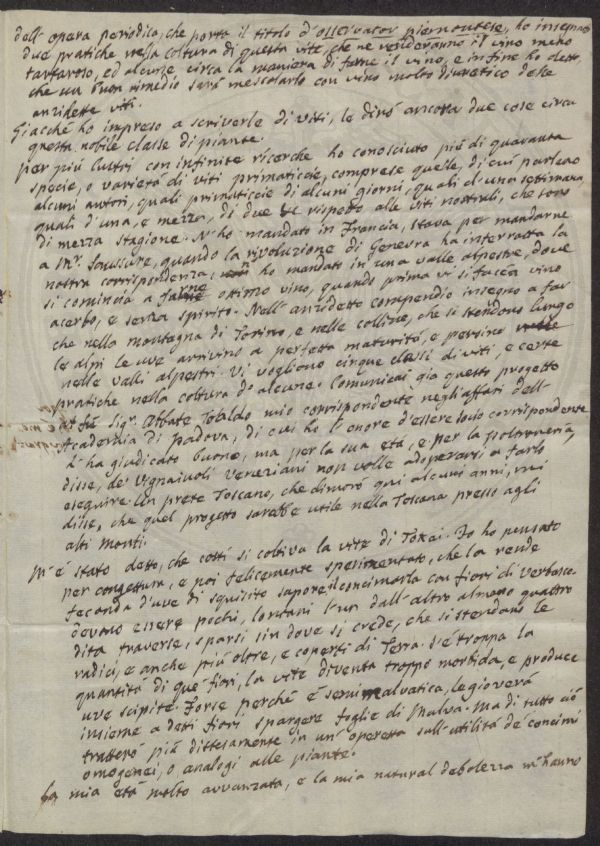 dell'opera periodica, che porta il titolo d'osservator piemontese, ho insegnato
due pratiche nella coltura di questa vite, che ne renderanno il vino meno
tartaroso, ed alcune circa la maniera di farne il vino, e infine ho detto,
che un buon rimedio sarà mescolarlo con vino molto diuretico delle
anzidette viti.
Giacché ho impreso a scriverle di viti, le dirò ancora due cose circa
questa nobile classe di piante.
per più lustri con infinite ricerche ho conosciuto più di quaranta
specie, o varietà di viti primaticcie, comprese quelle, di cui parlano
alcuni autori, quali primaticcie di alcuni giorni, quali d'una settimana
quali d'una, e mezza, di due rispetto alle viti nostrali, che sono
di mezza stagione. N'ho mandato in Francia, stava per mandarne
a Mr. Saussure, quando la rivoluzione di Genevra ha interrotta la
nostra corrispondenza, n'ho mandato in una valle alpestre, dove
si comincia a farne ottimo vino, quando prima vi si facea vino
acerbo, e senza spirito. Nell'anzidetto compendio insegno a far
che nella montagna di Torino, e nelle colline, che si stendono lungo
le alpi le uve arrivino a perfetta maturità, e persino
nelle valli alpestri. Vi vogliono cinque classi di viti, e certe
pratiche nella coltura di alcune. Comunicai già questo progetto
al fu Sigr. Abbate Toaldo mio corrispondente negli affari dell'
Accademia di padova, di cui ho l'onore d'essere socio corrispondente
L'ha giudicato buono, ma per la sua età, e per la poltroneria,
disse, de' Vignaiuoli Veneziani non volle adoperarsi a farlo
eseguire. Un prete Toscano, che dimorò qui alcuni anni, mi
disse, che quel progetto sarebbe utile nella Toscana presso agli
alti monti.
M'è stato detto, che costì si coltiva la vite di Tokai. Io ho pensato
per congettura, e poi felicemente sperimentato, che la rende
feconda d'uve di squisito sapore il concimarla con fiori di verbasco.
devono essere pochi, lontani l'un dall'altro almeno quattro
dita traverse, sparsi sin dove si crede, che si stendano le
radici, e anche più oltre, e coperti di Terra. S'è troppa la
quantità di que' fiori, la vite diventa troppo morbida, e produce
uve scipite. Forse perché è semimalvatica, le gioverà
insieme a detti fiori spargere foglie di Malva. Ma di tutto ciò
tratterò più distesamente in un' operetta sull'utilità de' concimi
omogenei, o analogi alle piante.
La mia età molto avvanzata, e la mia natural debolezza m'hanno